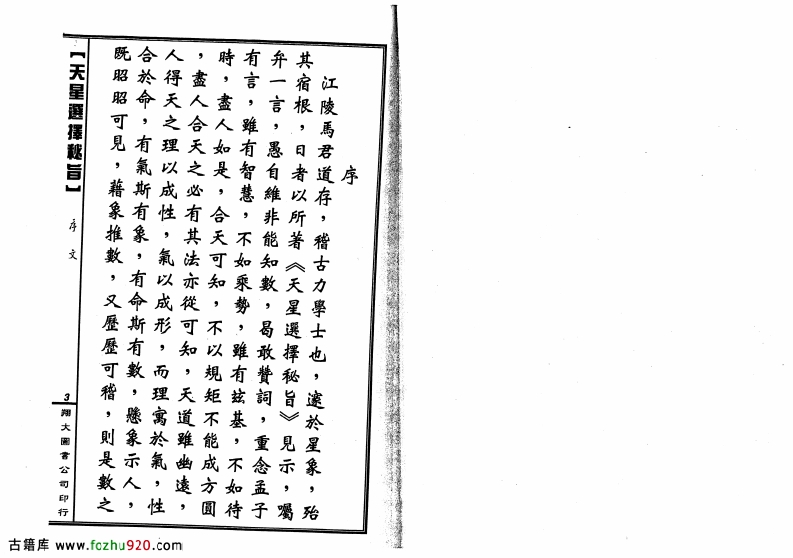 序
江陵馬君道存，稽古力學士也，邃於星象，殆
其宿根，日者以所著《天星選擇秘旨》見示，囑
弁一言，愚自維非能知數，曷敢贊詞，重念孟子
有言，雖有智慧，不如乘勢，雖有玆基，不如待
時，盡人如是，合天可知，不以規矩不能成方圓
，盡人合天之必有其法亦從可知，天道雖幽遠，
人得天之理以成性，氣以成形，而理寓於氣，性
合於命，有氣斯有象，有命斯有數，懸象示人，
既昭昭可見，藉象推數，又歷歷可稽，則是數之
【天星選擇秘旨】
序文
3
翔大圖書公司印行
古籍库 www.fozhu920.com